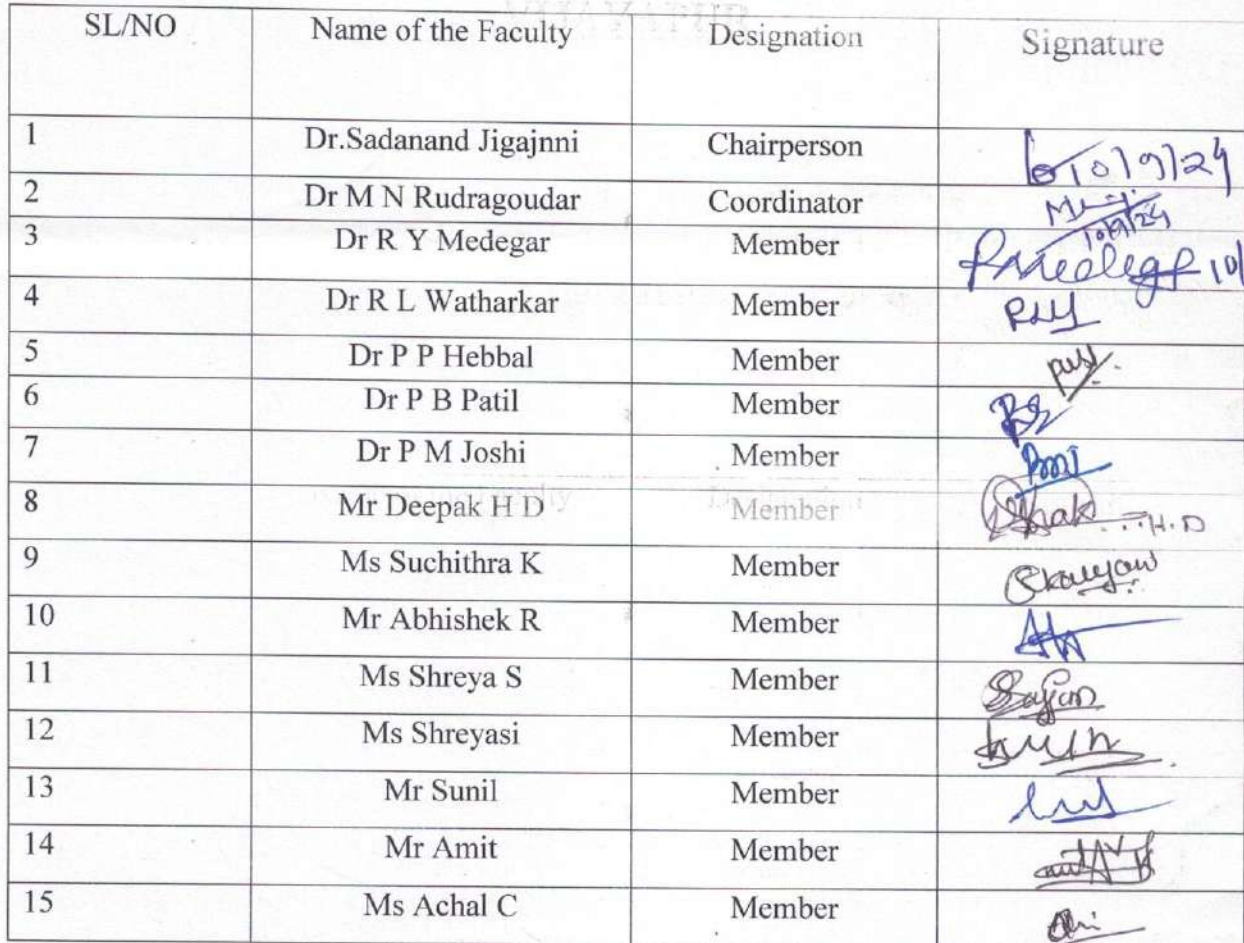 SL/NO Name of the Faculty Designation Signature
1 Dr.Sadanand Jigajnni Chairperson 10/9/24
2 Dr M N Rudragoudar Coordinator 10/9/24
3 Dr R Y Medegar Member
4 Dr R L Watharkar Member
5 Dr P P Hebbal Member
6 Dr P B Patil Member
7 Dr P M Joshi Member
8 Mr Deepak H D Member H.D
9 Ms Suchithra K Member
10 Mr Abhishek R Member
11 Ms Shreya S Member
12 Ms Shreyasi Member
13 Mr Sunil Member
14 Mr Amit Member
15 Ms Achal C Member